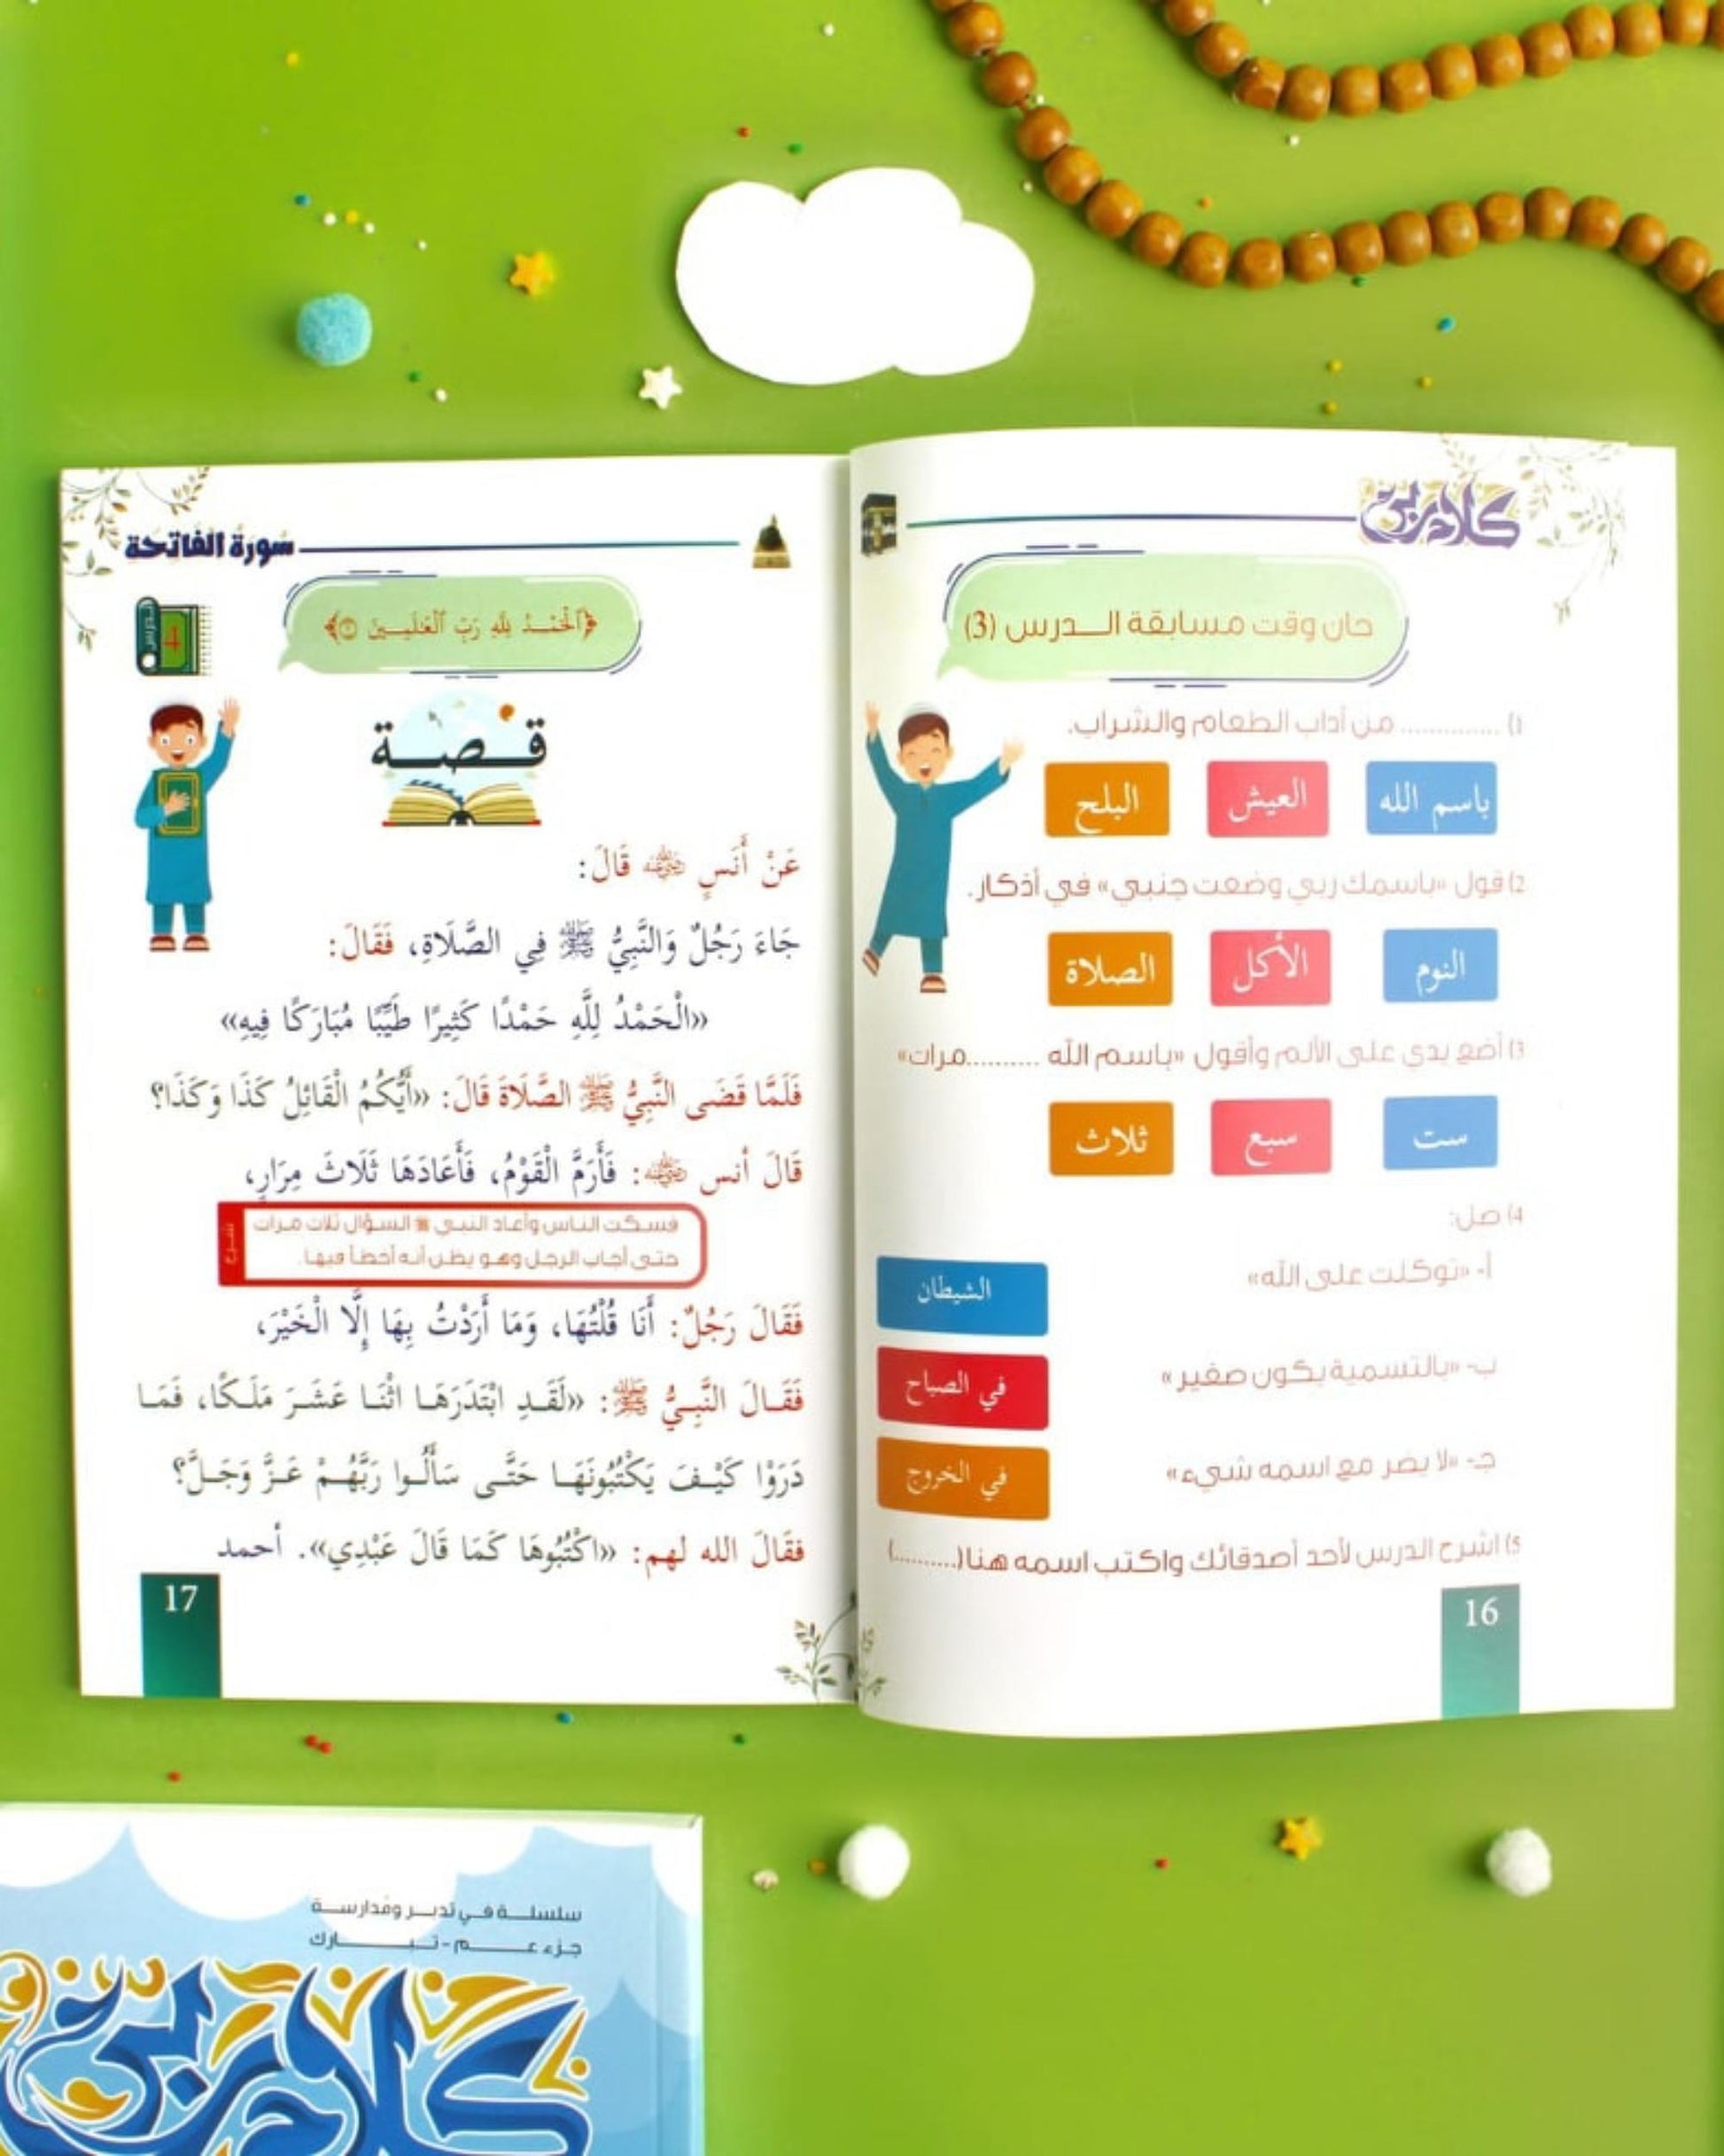 كلام ربي
حان وقت مسابقة الـــدرس (3)
1) ............. من آداب الطعام والشراب.
باسم الله
العيش
البلح
2) قول «باسمك ربي وضعت جنبي» في أذكار.
النوم
الأكل
الصلاة
3) أضع يدي على الألم وأقول «باسم الله ..........مرات»
ست
سبع
ثلاث
4) صل:
أ- «توكلت على الله»
الشيطان
ب- «بالتسمية يكون صغير»
في الصباح
جـ- «لا يضر مع اسمه شيء»
في الخروج
5) اشرح الدرس لأحد أصدقائك واكتب اسمه هنا (..........)
16
سورة الفاتحة
الدرس
4
﴿ٱلۡحَمۡـدُ لِلَّهِ رَبِّ ٱلۡعَٰلَمِـينَ ۝﴾
قـصـة
عَنْ أَنَسٍ ﵁ قَالَ:
جَاءَ رَجُلٌ وَالنَّبِيُّ ﷺ فِي الصَّلَاةِ، فَقَالَ:
«الْحَمْدُ لِلَّهِ حَمْدًا كَثِيرًا طَيِّبًا مُبَارَكًا فِيهِ»
فَلَمَّا قَضَى النَّبِيُّ ﷺ الصَّلَاةَ قَالَ: «أَيُّكُمُ الْقَائِلُ كَذَا وَكَذَا؟
قَالَ أنس ﵁: فَأَرَمَّ الْقَوْمُ، فَأَعَادَهَا ثَلَاثَ مِرَارٍ،
شرح
فسكت الناس وأعاد النبي ﷺ السؤال ثلاث مرات
حتى أجاب الرجل وهو يظن أنه أخطأ فيها.
فَقَالَ رَجُلٌ: أَنَا قُلْتُهَا، وَمَا أَرَدْتُ بِهَا إِلَّا الْخَيْرَ،
فَقَـالَ النَّبِـيُّ ﷺ: «لَقَـدِ ابْتَدَرَهَـا اثْنَـا عَشَـرَ مَلَـكًا، فَمَـا
دَرَوْا كَيْـفَ يَكْتُبُونَهَـا حَتَّـى سَأَلُـوا رَبَّهُـمْ عَـزَّ وَجَـلَّ؟
فقَالَ الله لهم: «اكْتُبُوهَا كَمَا قَالَ عَبْدِي». أحمد
17
سلسلـــة فـــي تدبـــر ومُدارســـة
جـزء عـــــم - تـــبـــــارك
كلام ربي